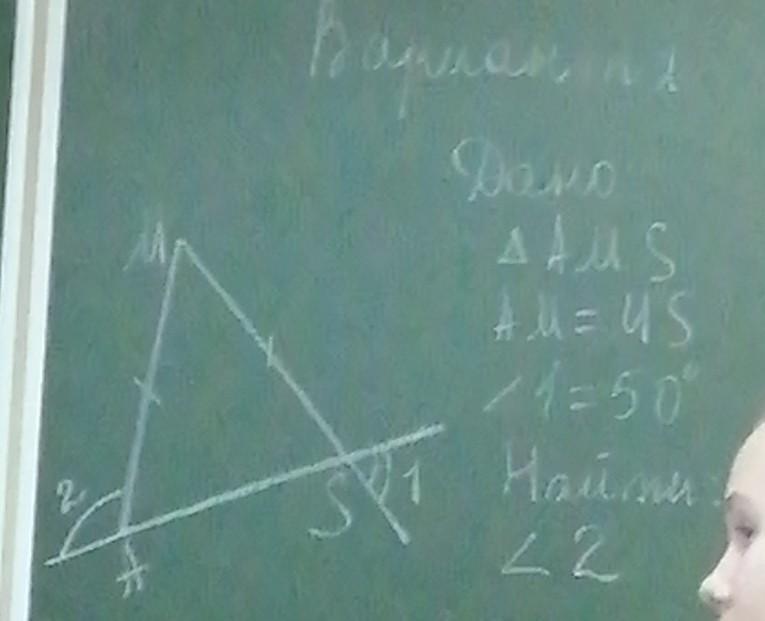 Вариант 1
Дано
Δ AMS
AM = MS
∠1 = 50°
Найти:
∠2
M
2
A
S
1